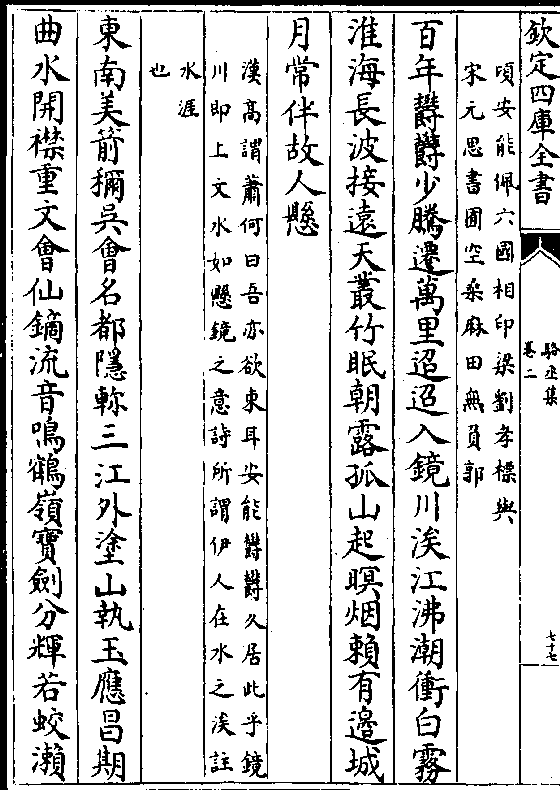 欽定四庫全書
駱丞集
卷二
七十七
頃安能佩六國相印梁劉孝標與
宋元思書圃空桑麻田無負郭
百年欝欝少騰遷萬里迢迢入鏡川涘江沸潮衝白霧
淮海長波接遠天叢竹眠朝露孤山起暝烟賴有邊城
月常伴故人懸
漢高謂蕭何曰吾亦欲東耳安能欝欝久居此乎鏡
川即上文水如懸鏡之意詩所謂伊人在水之涘註
水涯
也
東南美箭稱吳會名都隱軫三江外塗山執玉應昌期
曲水開襟重文會仙鏑流音鳴鶴嶺寶劍分輝若蛟瀨